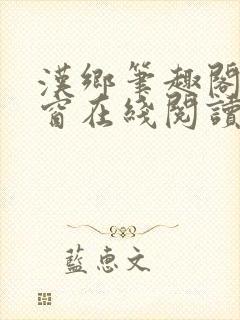 漢鄉筆趣閣
窗在綫閱讀
藍惠文